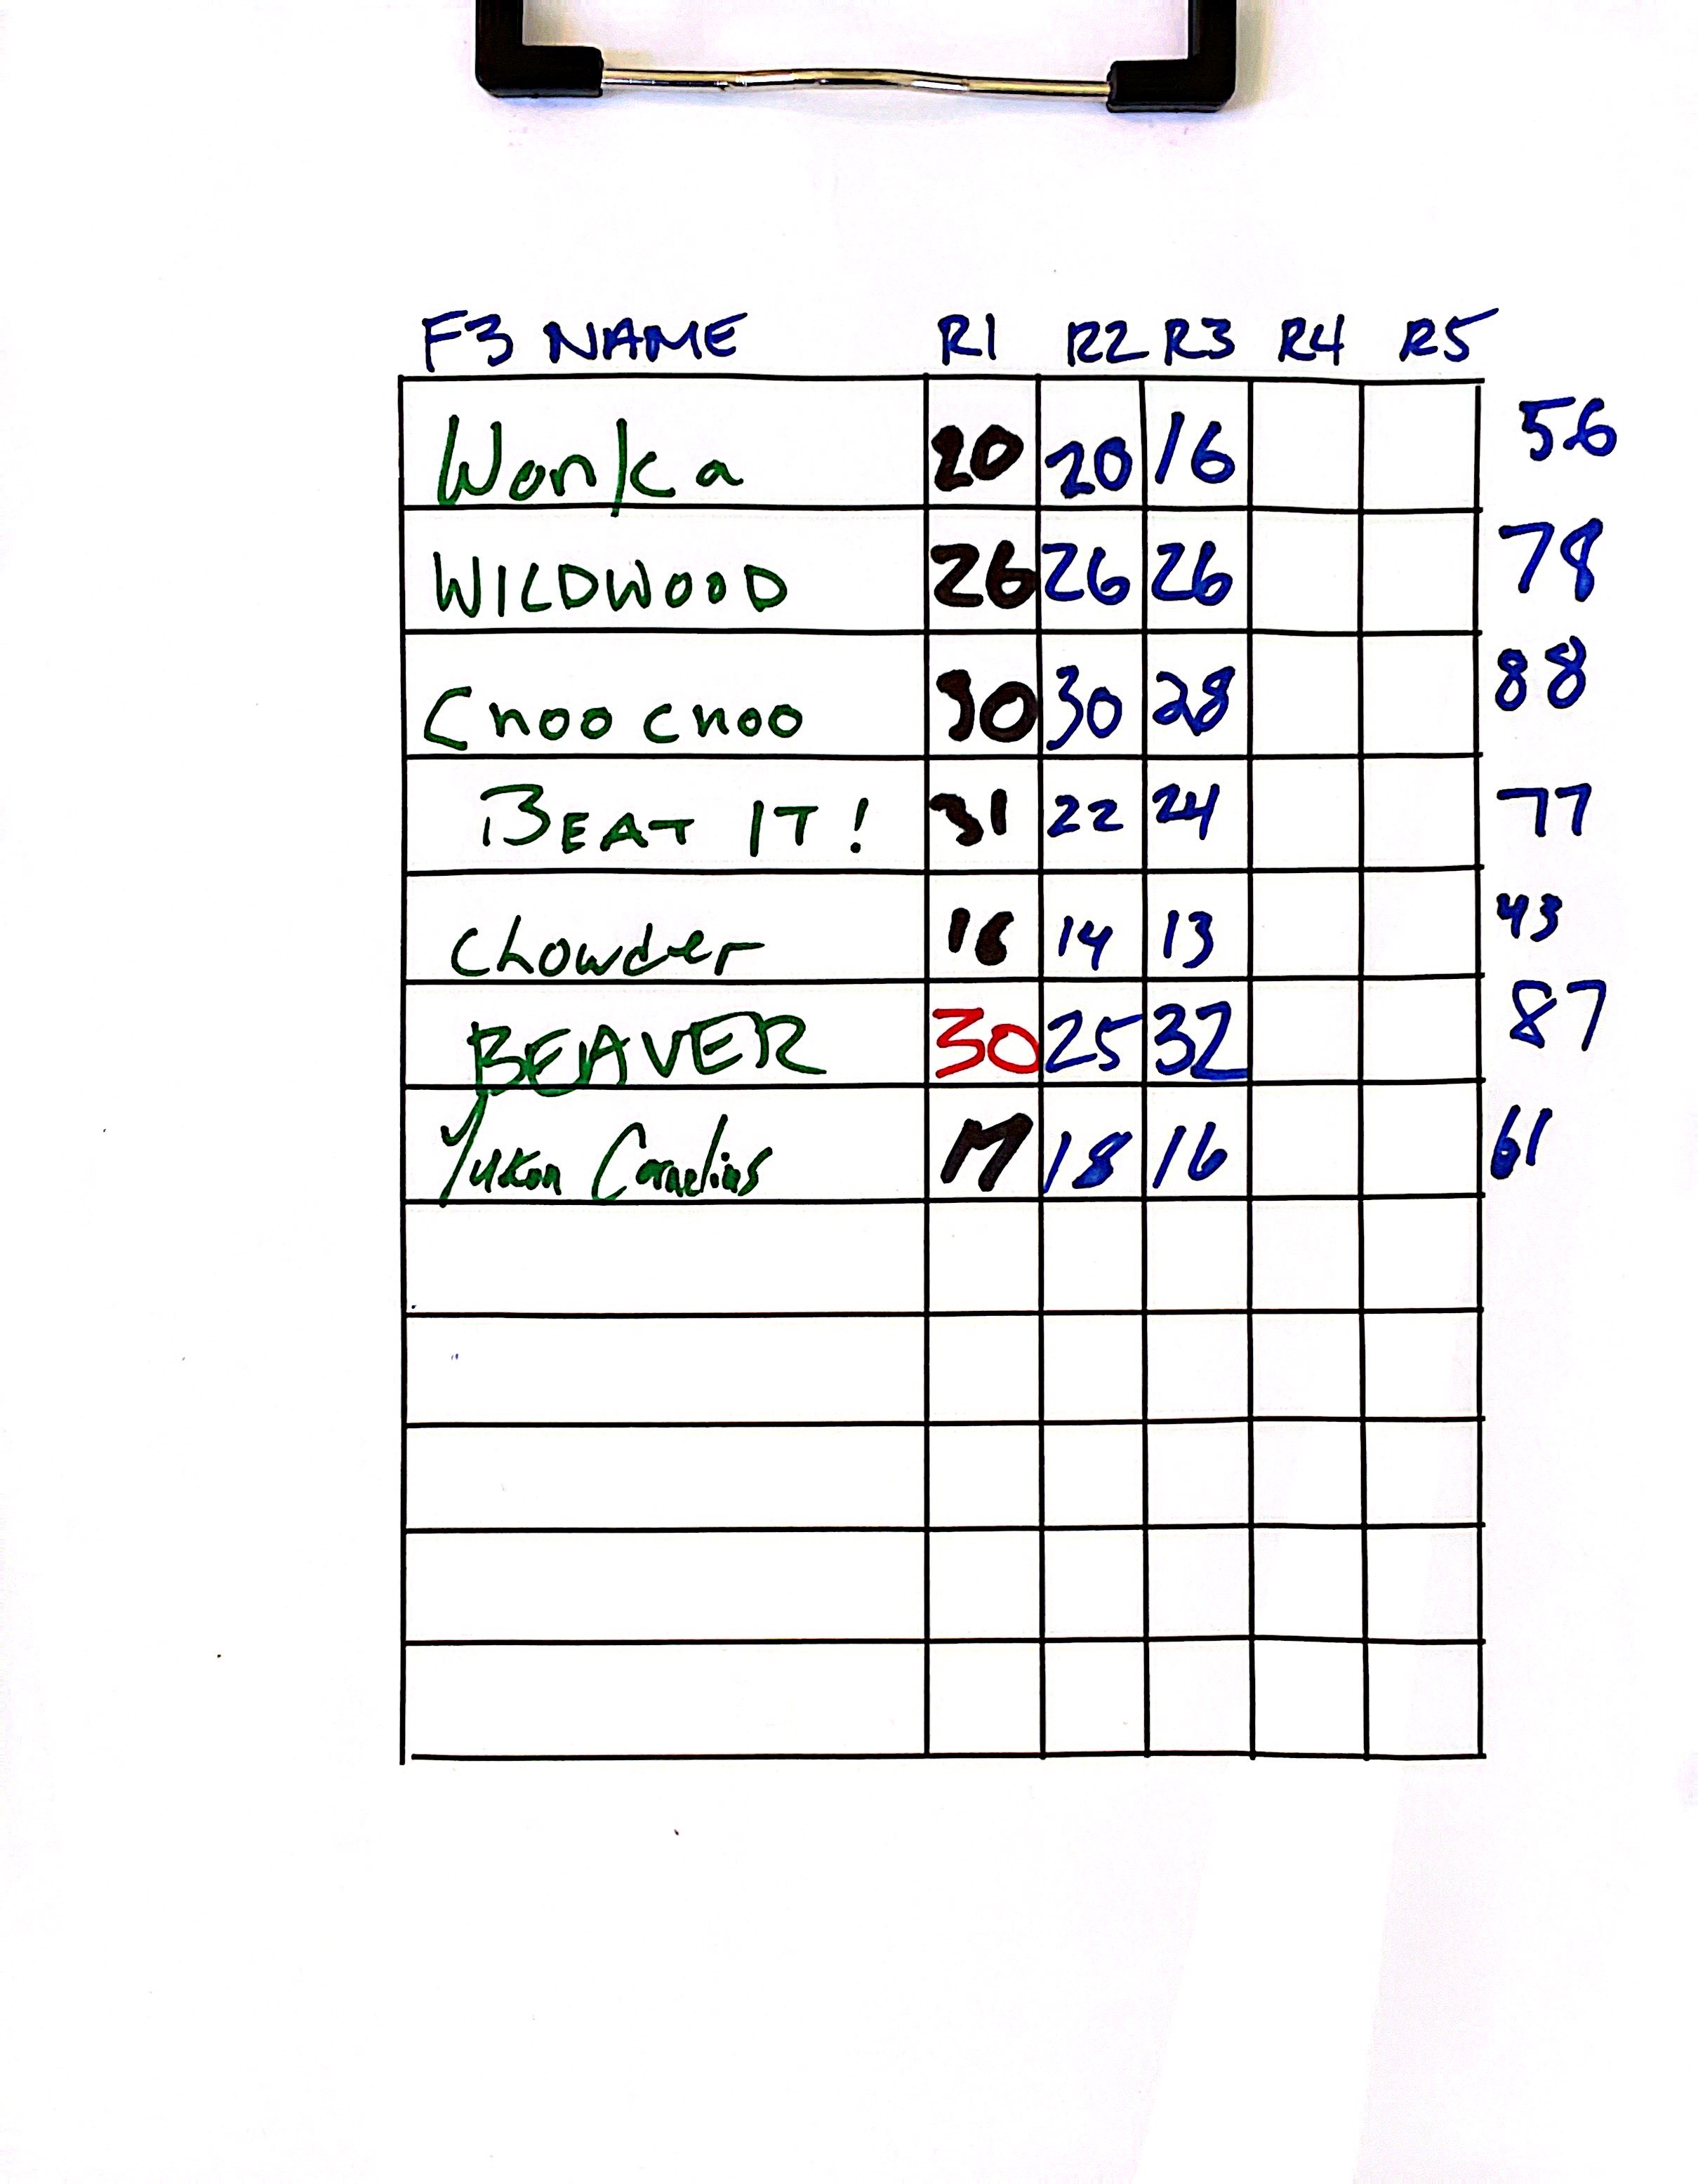 F3 NAME R1 R2 R3 R4 R5
Wonka 20 20 16 56
WILDWOOD 26 26 26 78
Choo choo 30 30 28 88
BEAT IT! 31 22 24 77
Chowder 16 14 13 43
BEAVER 30 25 32 87
Yukon Cornelius 17 18 16 61